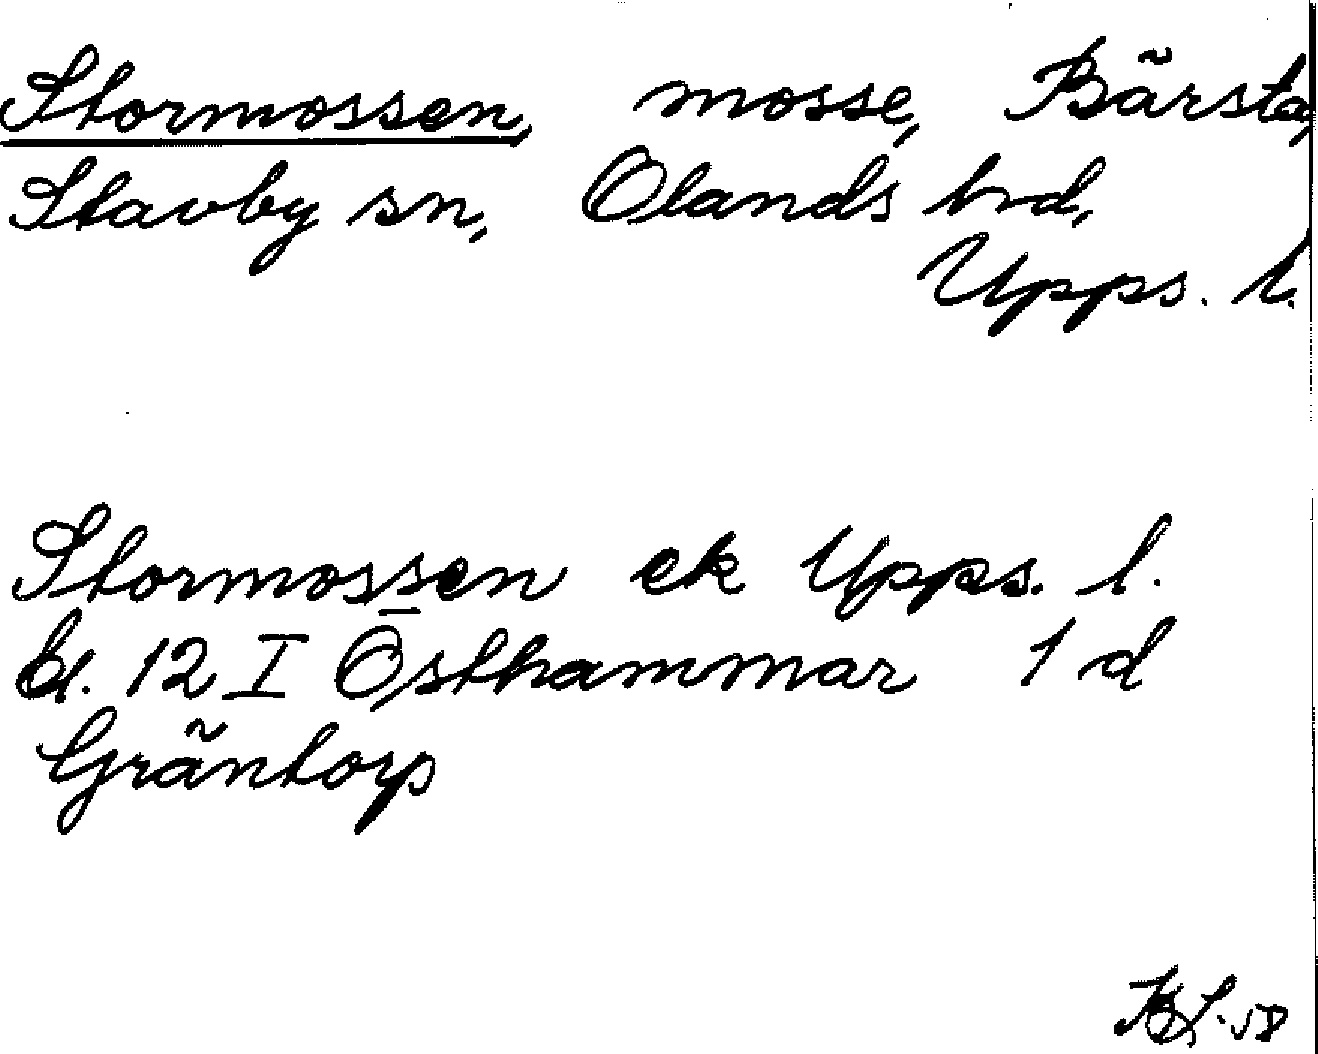 Stormossen, mosse, Bärsta,
Stavby sn, Olands hrd,
Upps. l.
Stormossen ek Upps. l.
bl. 12 I Östhammar 1 d
Gräntorp